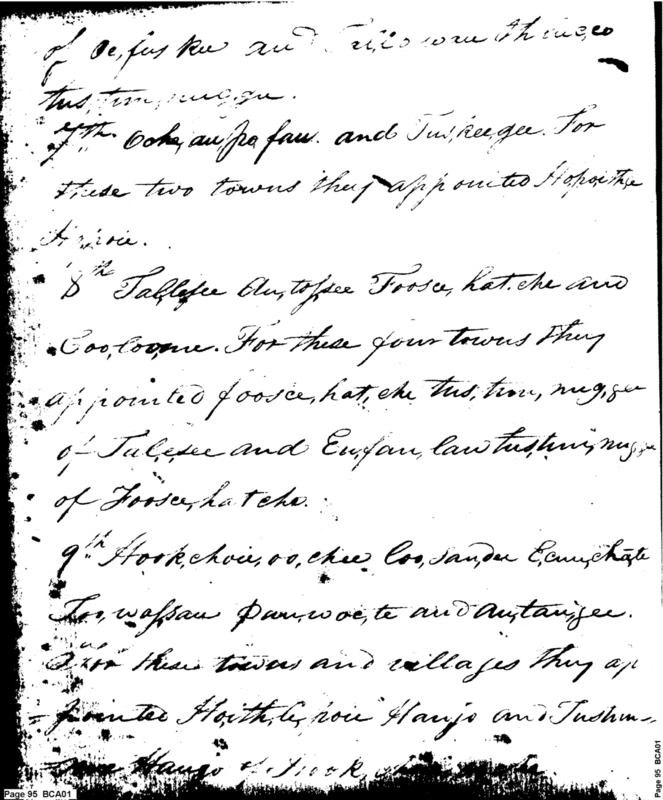 of Oc,fus kee and
tus,tun,nug,gee.
7th Oche,au,po fau. and Tus,kee,gee. For
these two towns they appointed Hopoithle
Hopoie.
8th Tallesee Au,tossee Foosce,hat.che and
Coo,loome. For these four towns they
appointed foosce,hat,che tus,tun,nug,gee
of Talesee and Eu,fau,lau tus,tun,nug,gee
of Foosce,hatche.
9th Hook,choie,oo,chee Coo,sau,dee E,cun,chate
Too,wassau Pau,woc,te and Au,tau,gee.
For these towns and villages they ap
-pointed Hoith,le,poie Haujo and Tushun-
Haujo of Hook,
Page 95 BCA01
Page 95 BCA01